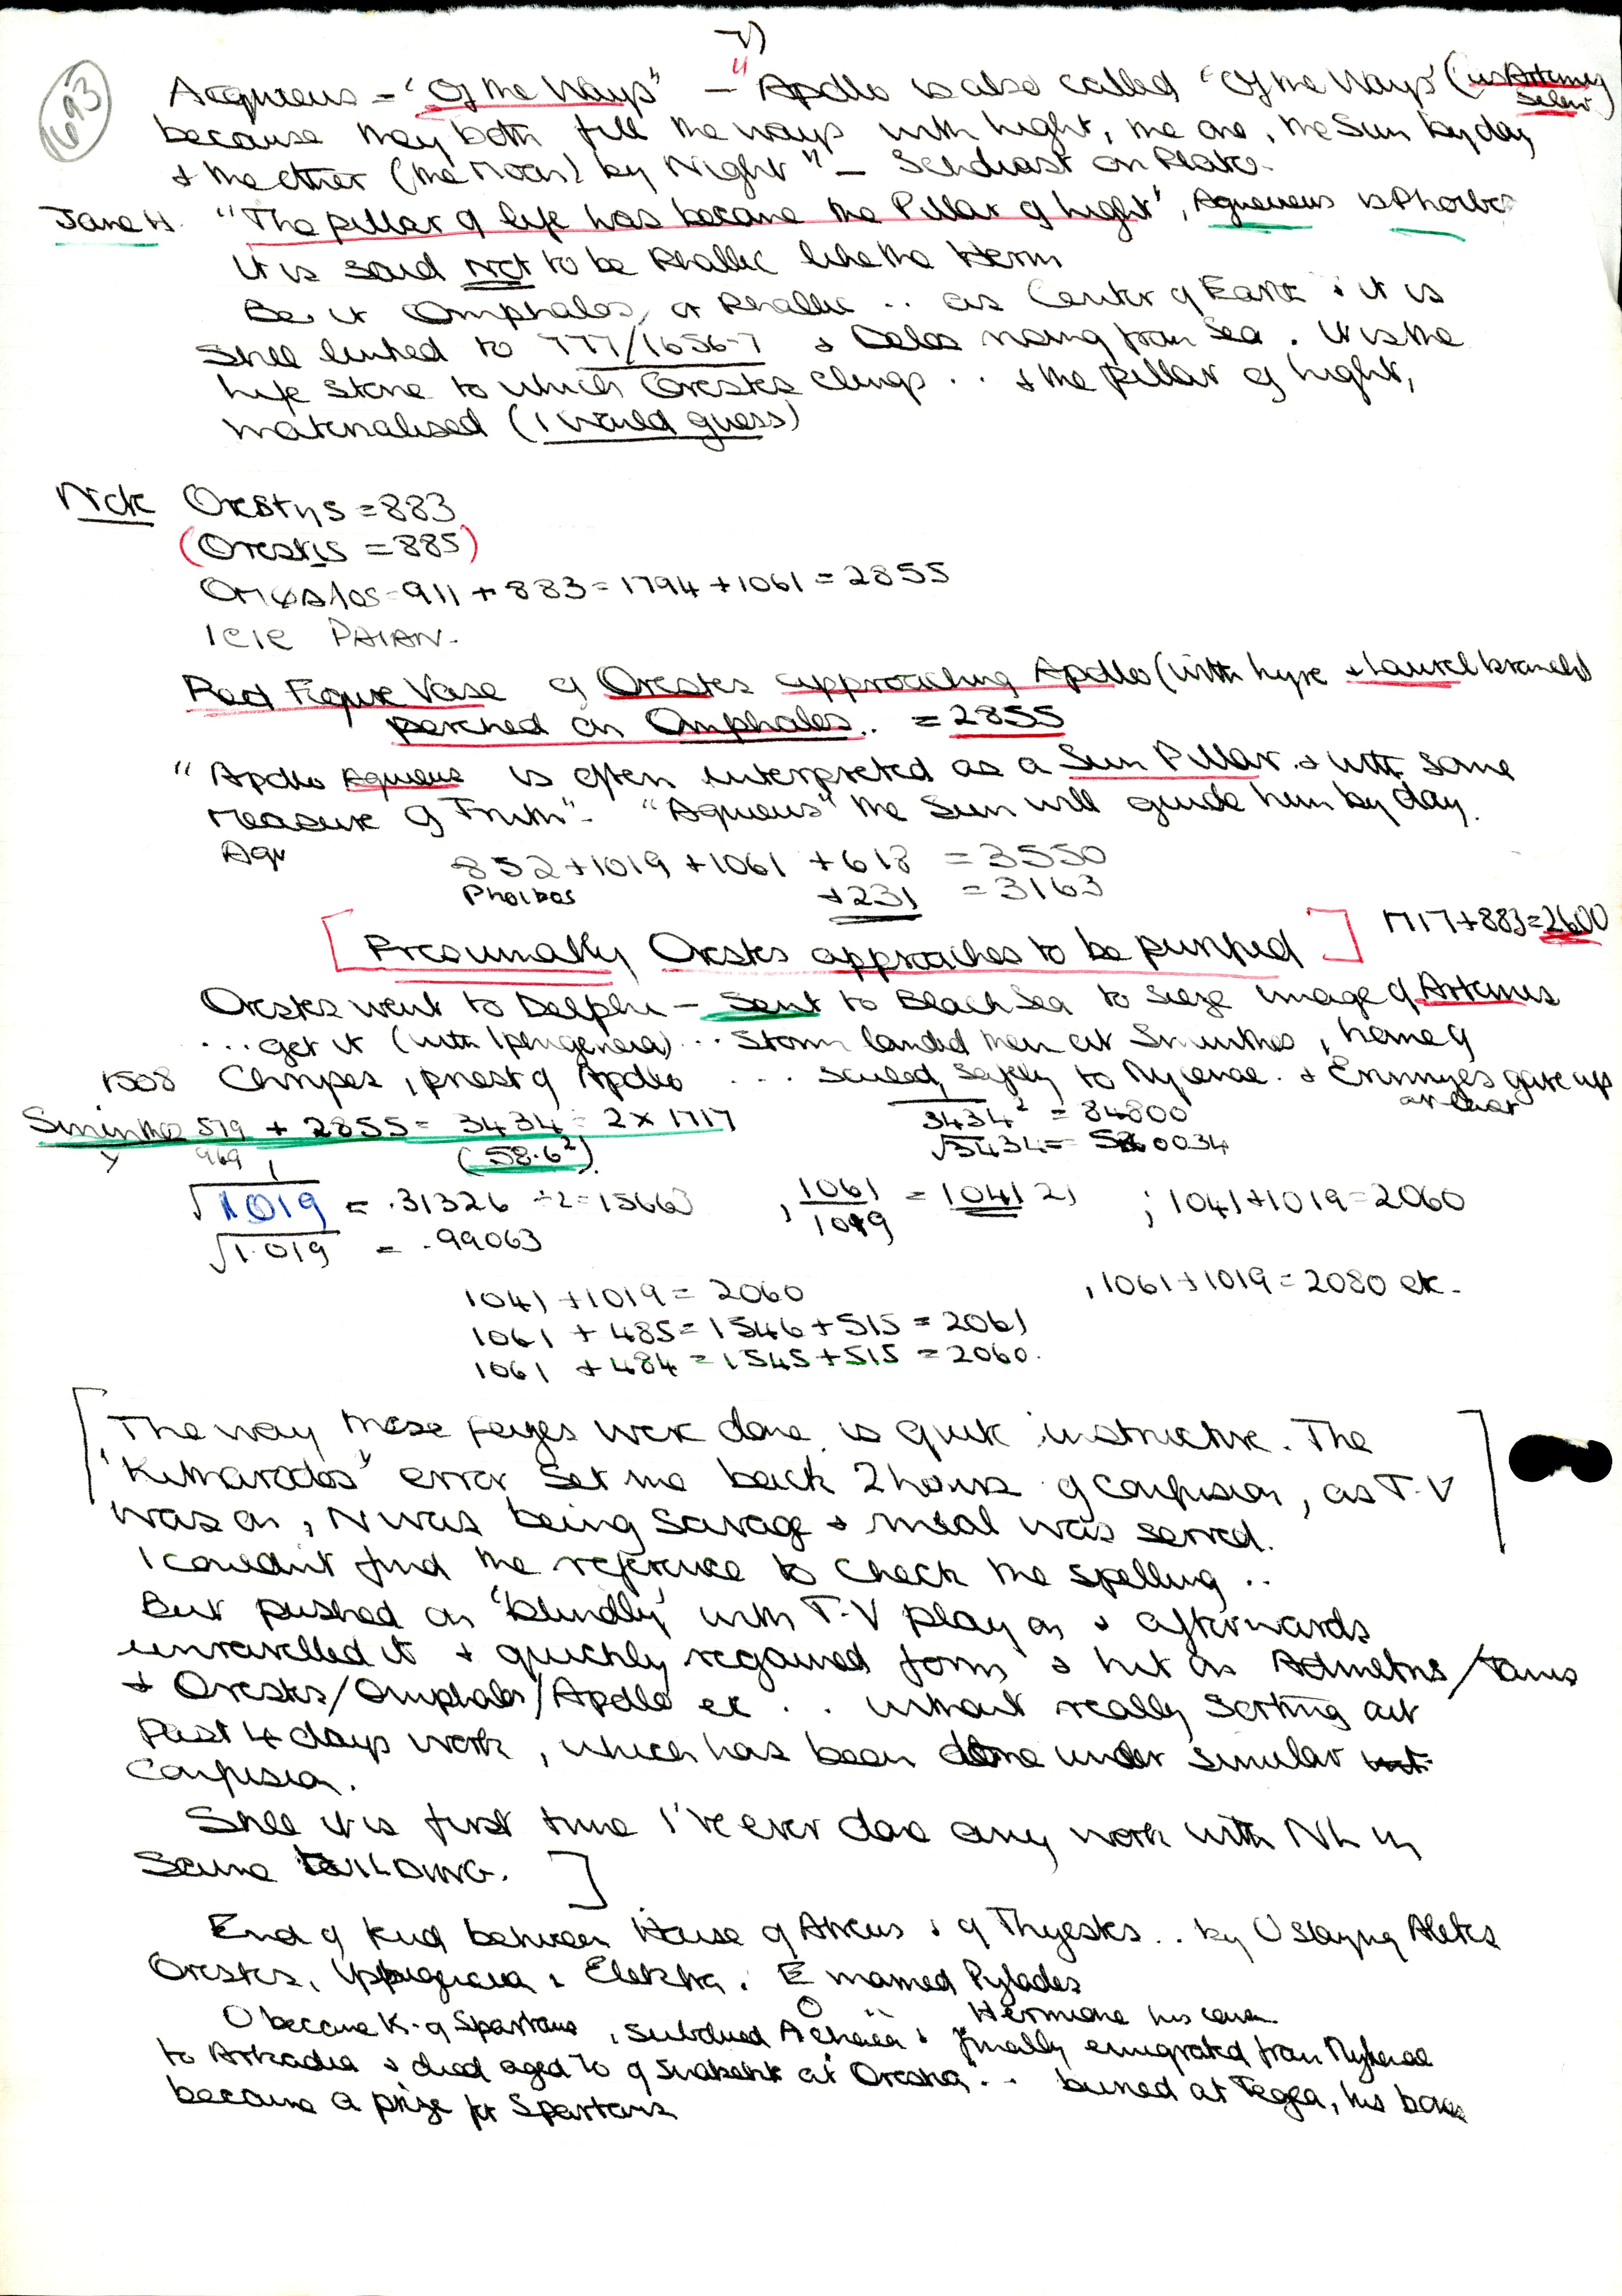 1693
Aeguieus = "Of the Ways" – "Apollo is also called 'Of the Ways' (as Artemis
because they both fill the ways with light, the one, the Sun by day
& the other (the Moon) by Night" – Scholiast on Plato.
Jane H. "The pillar of life has become the Pillar of Light", Aguieus is Phoibos
It is said Not to be Phallic like the Herm
Be it Omphalos, or Phallic .. as Center of Earth & it is
still linked to 777/1656-7 & Delos rising from Sea. It is the
life stone to which Orestes clings .. & the pillar of light,
materialised (I would guess)
Note Orestys = 883
(Orestis = 885)
Omφalos = 911 + 883 = 1794 + 1061 = 2855
IEIE PAIAN.
Red Figure Vase of Orestes approaching Apollo (with lyre & Laurel branch)
perched on Omphalos.. = 2855
"Apollo Aguieus is often interpreted as a Sun Pillar & with some
measure of Truth". "Aguieus" the Sun will guide him by day.
Agu 852 + 1019 + 1061 + 618 = 3550
Phoibos + 231 = 3163
[Presumably Orestes approaches to be purified] 1717 + 883 = 2600
Orestes went to Delphi – Sent to Black Sea to seize image of Artemis
... get it (with Iphigeneia) ... Storm landed them at Sminthos, home of
1508 Chryses, priest of Apollo .... sailed safely to Mykenae. & Erinnyes gave up
at last
Sminthos 579 + 2855 = 3434 = 2 x 1717
969 (58.6²)
3434² = 84800
√3434 = 580034
√1019 = .31326 ÷ 2 = 15663
, 1061/1019 = 1041 21 ; 1041 + 1019 = 2060
√1.019 = .99063
1041 + 1019 = 2060 , 1061 + 1019 = 2080 etc.
1061 + 485 = 1546 + 515 = 2061
1061 + 484 = 1545 + 515 = 2060.
[The way these pages were done is quite instructive. The
"Kitharodos" error set me back 2 hours of confusion, as T.V
was on, N was being savage & meal was served.
I couldn't find the reference to check the spelling ..
But pushed on 'blindly' with T.V play on & afterwards
unravelled it & quickly regained form & hit on Admetus /
& Orestes/Omphalos/Apollo etc .. without really sorting out
past 4 days work, which has been done under similar
confusion.
Still it is first time I've ever done any work with NL in
same BUILDING.]
End of feud between House of Atreus & of Thyestes .. by O slaying Aletes
Orestes, Iphigeneia & Elektra. E married Pylades
O Hermione his
O became K. of Spartans, subdued Achaia & finally emigrated from Mykenae
to Arkadia & died aged 70 of snakebite at Oresteia .. buried at Tegea, his bones
became a prize for Spartans